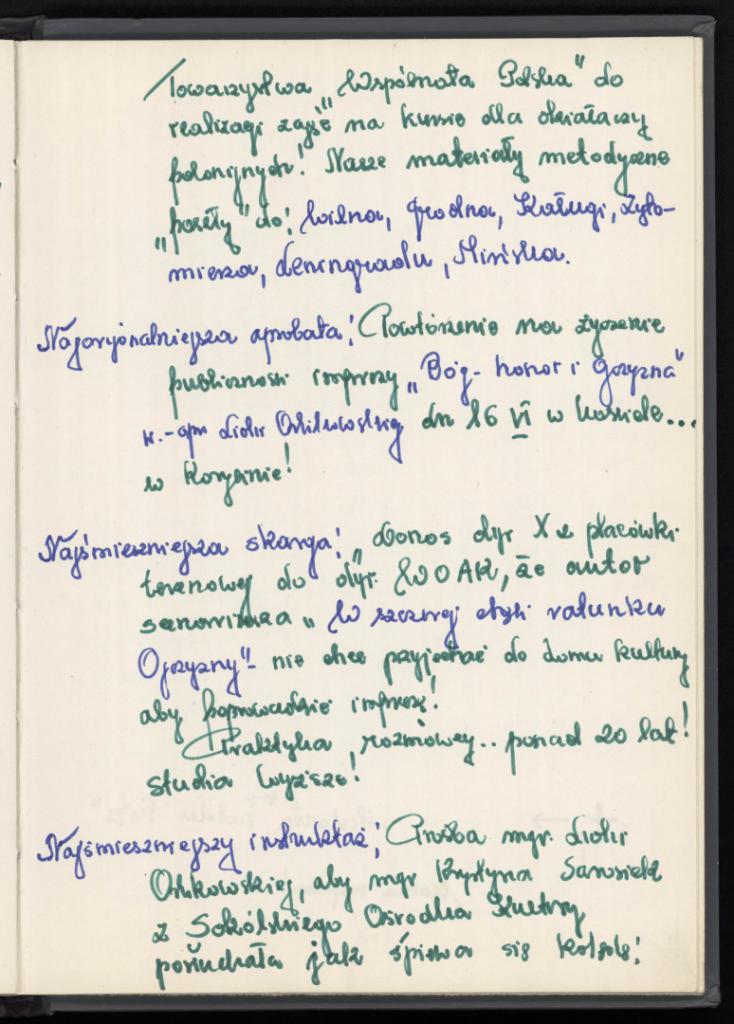 Towarzystwa „Wspólnota Polska" do
realizacji zajęć na kursie dla działaczy
polonijnych! Nasze materiały metodyczne
„poszły" do: Wilna, Grodna, Kaługi, Żyto-
mierza, Leningradu, Mińska.
Najoryginalniejsza aprobata: Powtórzenie na życzenie
publiczności imprezy „Bóg - honor i Ojczyzna"
w dn 16 VI w kościele...
w Korycinie!
Najśmieszniejsza skarga: „donos dyr X z placówki
terenowej do dyr. WOAK, że autor
scenariusza „W szczerej chęci ratunku
Ojczyzny" - nie chce przyjechać do domu kultury
aby poprowadzić imprezę!
Praktyka rozmówcy.. ponad 20 lat!
studia wyższe!
Najśmieszniejszy instruktaż: Prośba mgr. Lidii
Ośkowskiej, aby mgr Krystyna
z Sokólskiego Ośrodka Kultury
posłuchała jak śpiewa się kolędę!